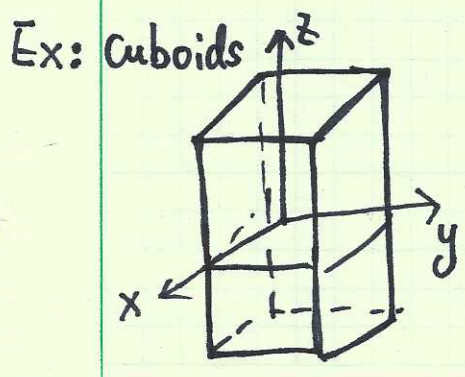 Ex: Cuboids
z
y
x